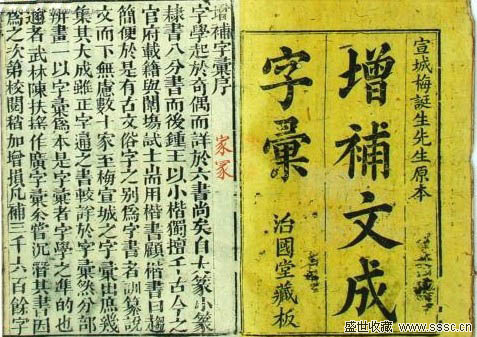 宣城梅誕生先生原本
增補文成
字彙
治國堂藏板
增補字彙序
字學起於奇偶而詳於六書尚矣自大篆小篆
隸書八分書而後鍾王以小楷獨擅千古今之
官府載籍與闈塲試士尚用楷書顧楷書日趨
簡便於是有古文俗字之別爲字書者訓纂說
文而下無慮數十家至梅宣城之字彙出庶幾
集其大成雖正字通之書較詳於字彙然分部
辨畫一以字彙爲本是字彙者字學之準的也
邇者武林陳扶搖作廣字彙余甞沉潛其書因
爲之次第校閱稍加增損凡補三千六百餘字
家冡
盛世收藏
www.sssc.cn